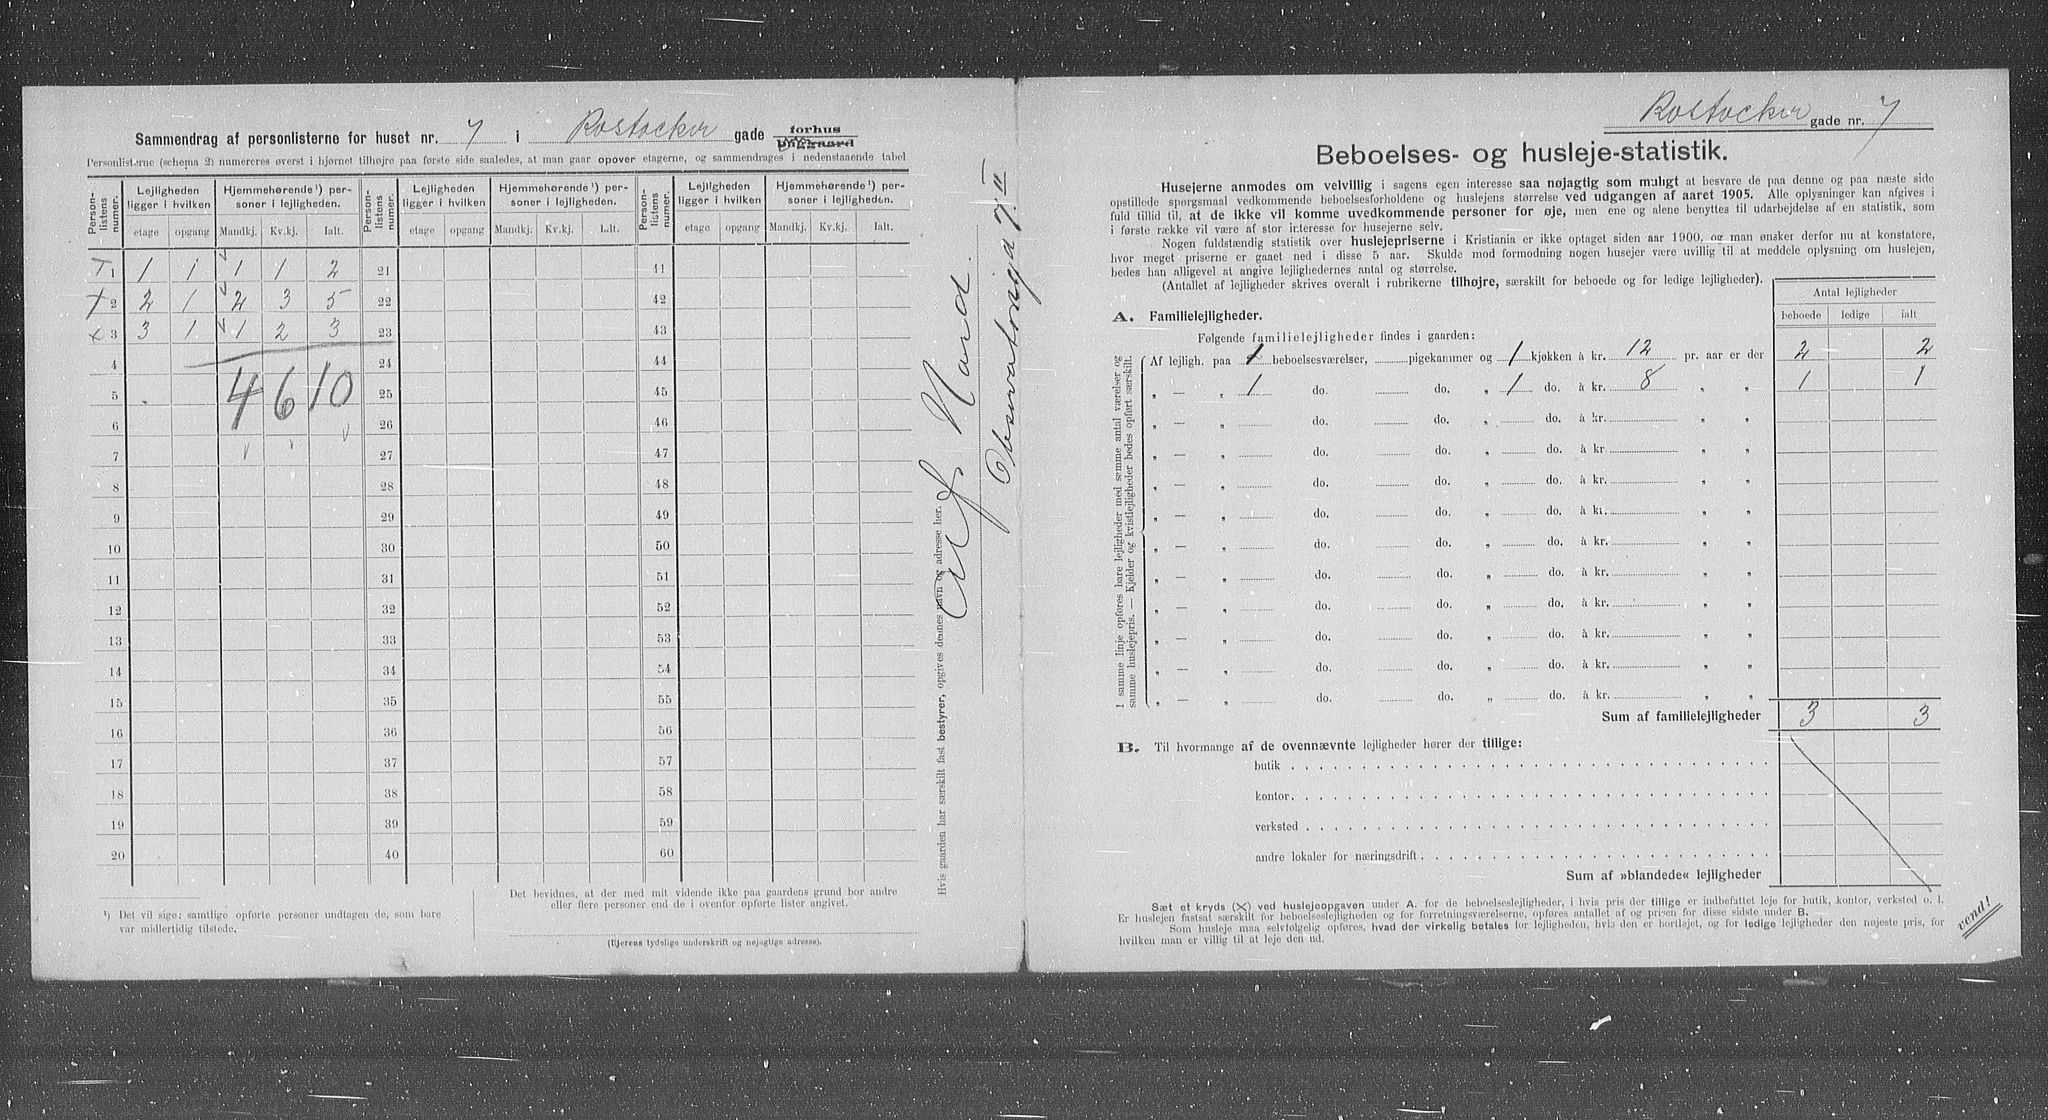 Sammendrag af personlisterne for huset nr. 7 i Rostocker gade forhus baggaard
Personlisterne (schema 2) numereres øverst i hjørnet tilhøjre paa første side saaledes, at man gaar opover etagerne, og sammendrages i nedenstaaende tabel
Person-listens numer. Lejligheden ligger i hvilken Hjemmehørende ¹) personer i lejligheden. Person-listens numer. Lejligheden ligger i hvilken Hjemmehørende ¹) personer i lejligheden. Person-listens numer. Lejligheden ligger i hvilken Hjemmehørende ¹) personer i lejligheden.
etage opgang Mandkj. Kv.kj. Ialt. etage opgang Mandkj. Kv.kj. Ialt. etage opgang Mandkj. Kv.kj. Ialt.
1 1 1 1 1 2 21 41
2 2 1 2 3 5 22 42
x 3 3 1 1 2 3 23 43
4 24 44
5 4 6 10 25 45
6 26 46
7 27 47
8 28 48
9 29 49
10 30 50
11 31 51
12 32 52
13 33 53
14 34 54
15 35 55
16 36 56
17 37 57
18 38 58
19 39 59
20 40 60
¹) Det vil sige: samtlige opførte personer undtagen de, som bare
var midlertidig tilstede.
Det bevidnes, at der med mit vidende ikke paa gaardens grund bor andre
eller flere personer end de i ovenfor opførte lister angivet.
(Ejerens tydelige underskrift og nøjagtige adresse).
Hvis gaarden har særskilt fast bestyrer, opgives dennes navn og adresse her.
Observatoriegd 7 II
Rostocker gade nr. 7
Beboelses- og husleje-statistik.
Husejerne anmodes om velvillig i sagens egen interesse saa nøjagtig som muligt at besvare de paa denne og paa næste side
opstillede spørgsmaal vedkommende beboelsesforholdene og huslejens størrelse ved udgangen af aaret 1905. Alle oplysninger kan afgives i
fuld tillid til, at de ikke vil komme uvedkommende personer for øje, men ene og alene benyttes til udarbejdelse af en statistik, som
i første række vil være af stor interesse for husejerne selv.
Nogen fuldstændig statistik over huslejepriserne i Kristiania er ikke optaget siden aar 1900, og man ønsker derfor nu at konstatere,
hvor meget priserne er gaaet ned i disse 5 aar. Skulde mod formodning nogen husejer være uvillig til at meddele oplysning om huslejen,
bedes han alligevel at angive lejlighedernes antal og størrelse.
(Antallet af lejligheder skrives overalt i rubrikerne tilhøjre, særskilt for beboede og for ledige lejligheder).
Antal lejligheder
beboede ledige ialt
A. Familielejligheder.
Følgende familielejligheder findes i gaarden:
I samme linje opføres bare lejligheder med samme antal værelser og
samme huslejepris. — Kjelder og kvistlejligheder bedes opført særskilt.
Af lejligh. paa 1 beboelsesværelser, pigekammer og 1 kjøkken à kr. 12 pr. aar er der 2 2
„ — „ 1 do. do. „ 1 do. à kr. 8 „ „ 1 1
„ — „ do. do. „ do. à kr. „ „
„ — „ do. do. „ do. à kr „ „
„ — „ do. do. „ do. à kr. „ „
„ — „ do. do. „ do. à kr. „ „
„ — „ do. do. „ do. à kr. „ „
„ — „ do. do. „ do. à kr. „ „
„ — „ do. do. „ do. à kr. „ „
„ — „ do. do. „ do. à kr. „ „
„ — „ do. do. „ do. à kr. „ „
„ — „ do. do. „ do. à kr. „ „
Sum af familielejligheder 3 3
B. Til hvormange af de ovennævnte lejligheder hører der tillige:
butik
kontor
verksted
andre lokaler for næringsdrift
Sum af »blandede« lejligheder
Sæt et kryds (X) ved huslejeopgaven under A. for de beboelseslejligheder, i hvis pris der tillige er indbefattet leje for butik, kontor, verksted o. l.
Er huslejen fastsat særskilt for beboelseslejligheden og for forretningsværelserne, opføres antallet af og prisen for disse sidste under B.
Som husleje maa selvfølgelig opføres, hvad der virkelig betales for lejligheden, hvis den er bortlejet, og for ledige lejligheder den nøjeste pris, for
hvilken man er villig til at leje den ud.
vend!